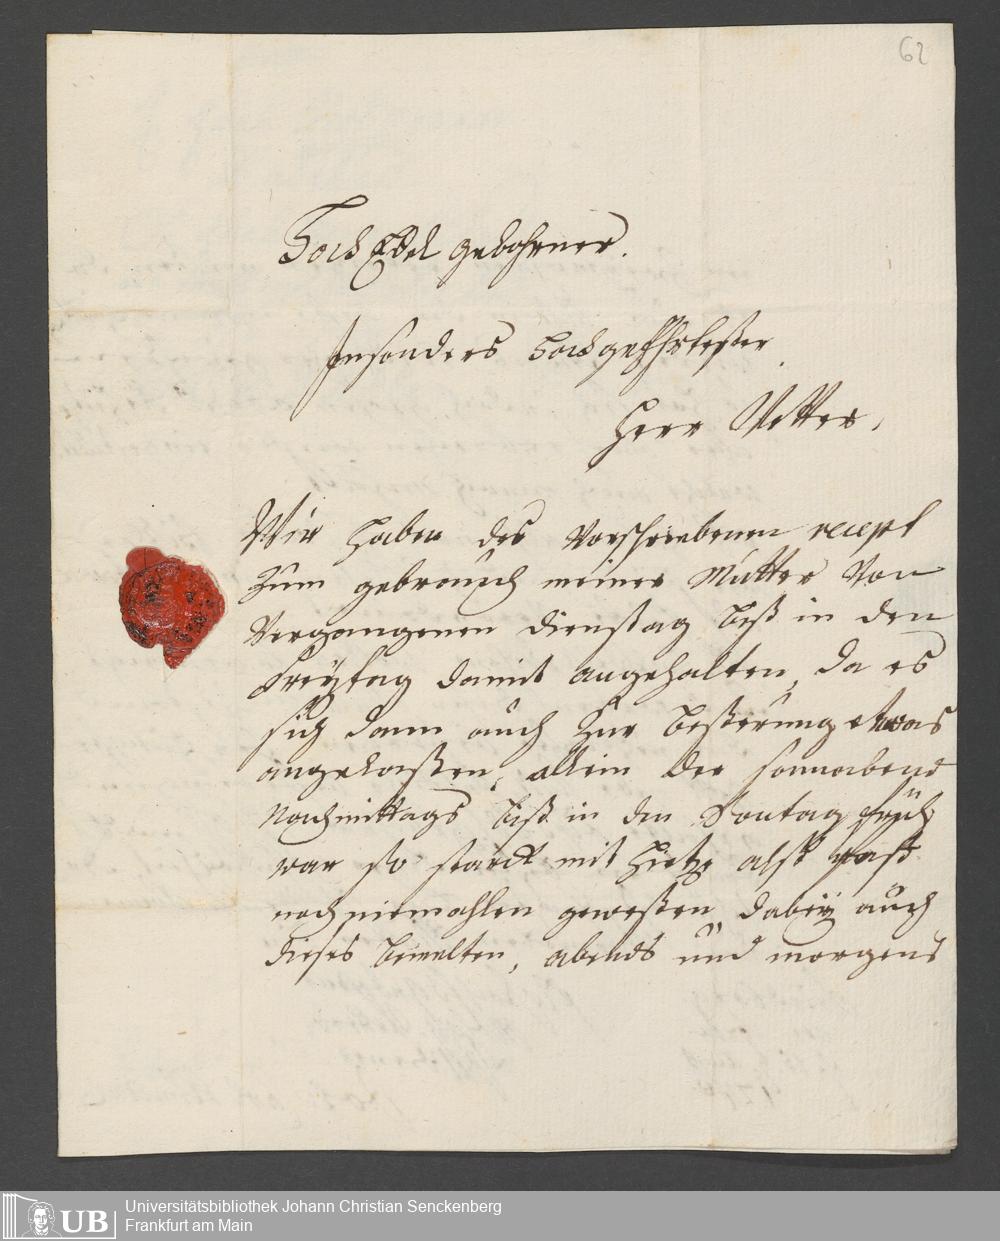 62
Hoch Edel gebohrner.
Insonders Hochgeehrtester
Herr Vetter,
Wir haben des Vorschriebenen recept
zum gebrauch meiner Mutter Von
Vergangenen dienstag biß in den
Freytag damit angehalten, da es
sich dann auch zur beßerung etwas
angelaßen, allein der sonnabend
Nachmittags biß in den Sontag früh
war so starck mit Hietze alß fast
noch niemahlen geweßen, dabey auch
dieses, abends und morgens
Universitätsbibliothek Johann Christian Senckenberg
Frankfurt am Main
UB